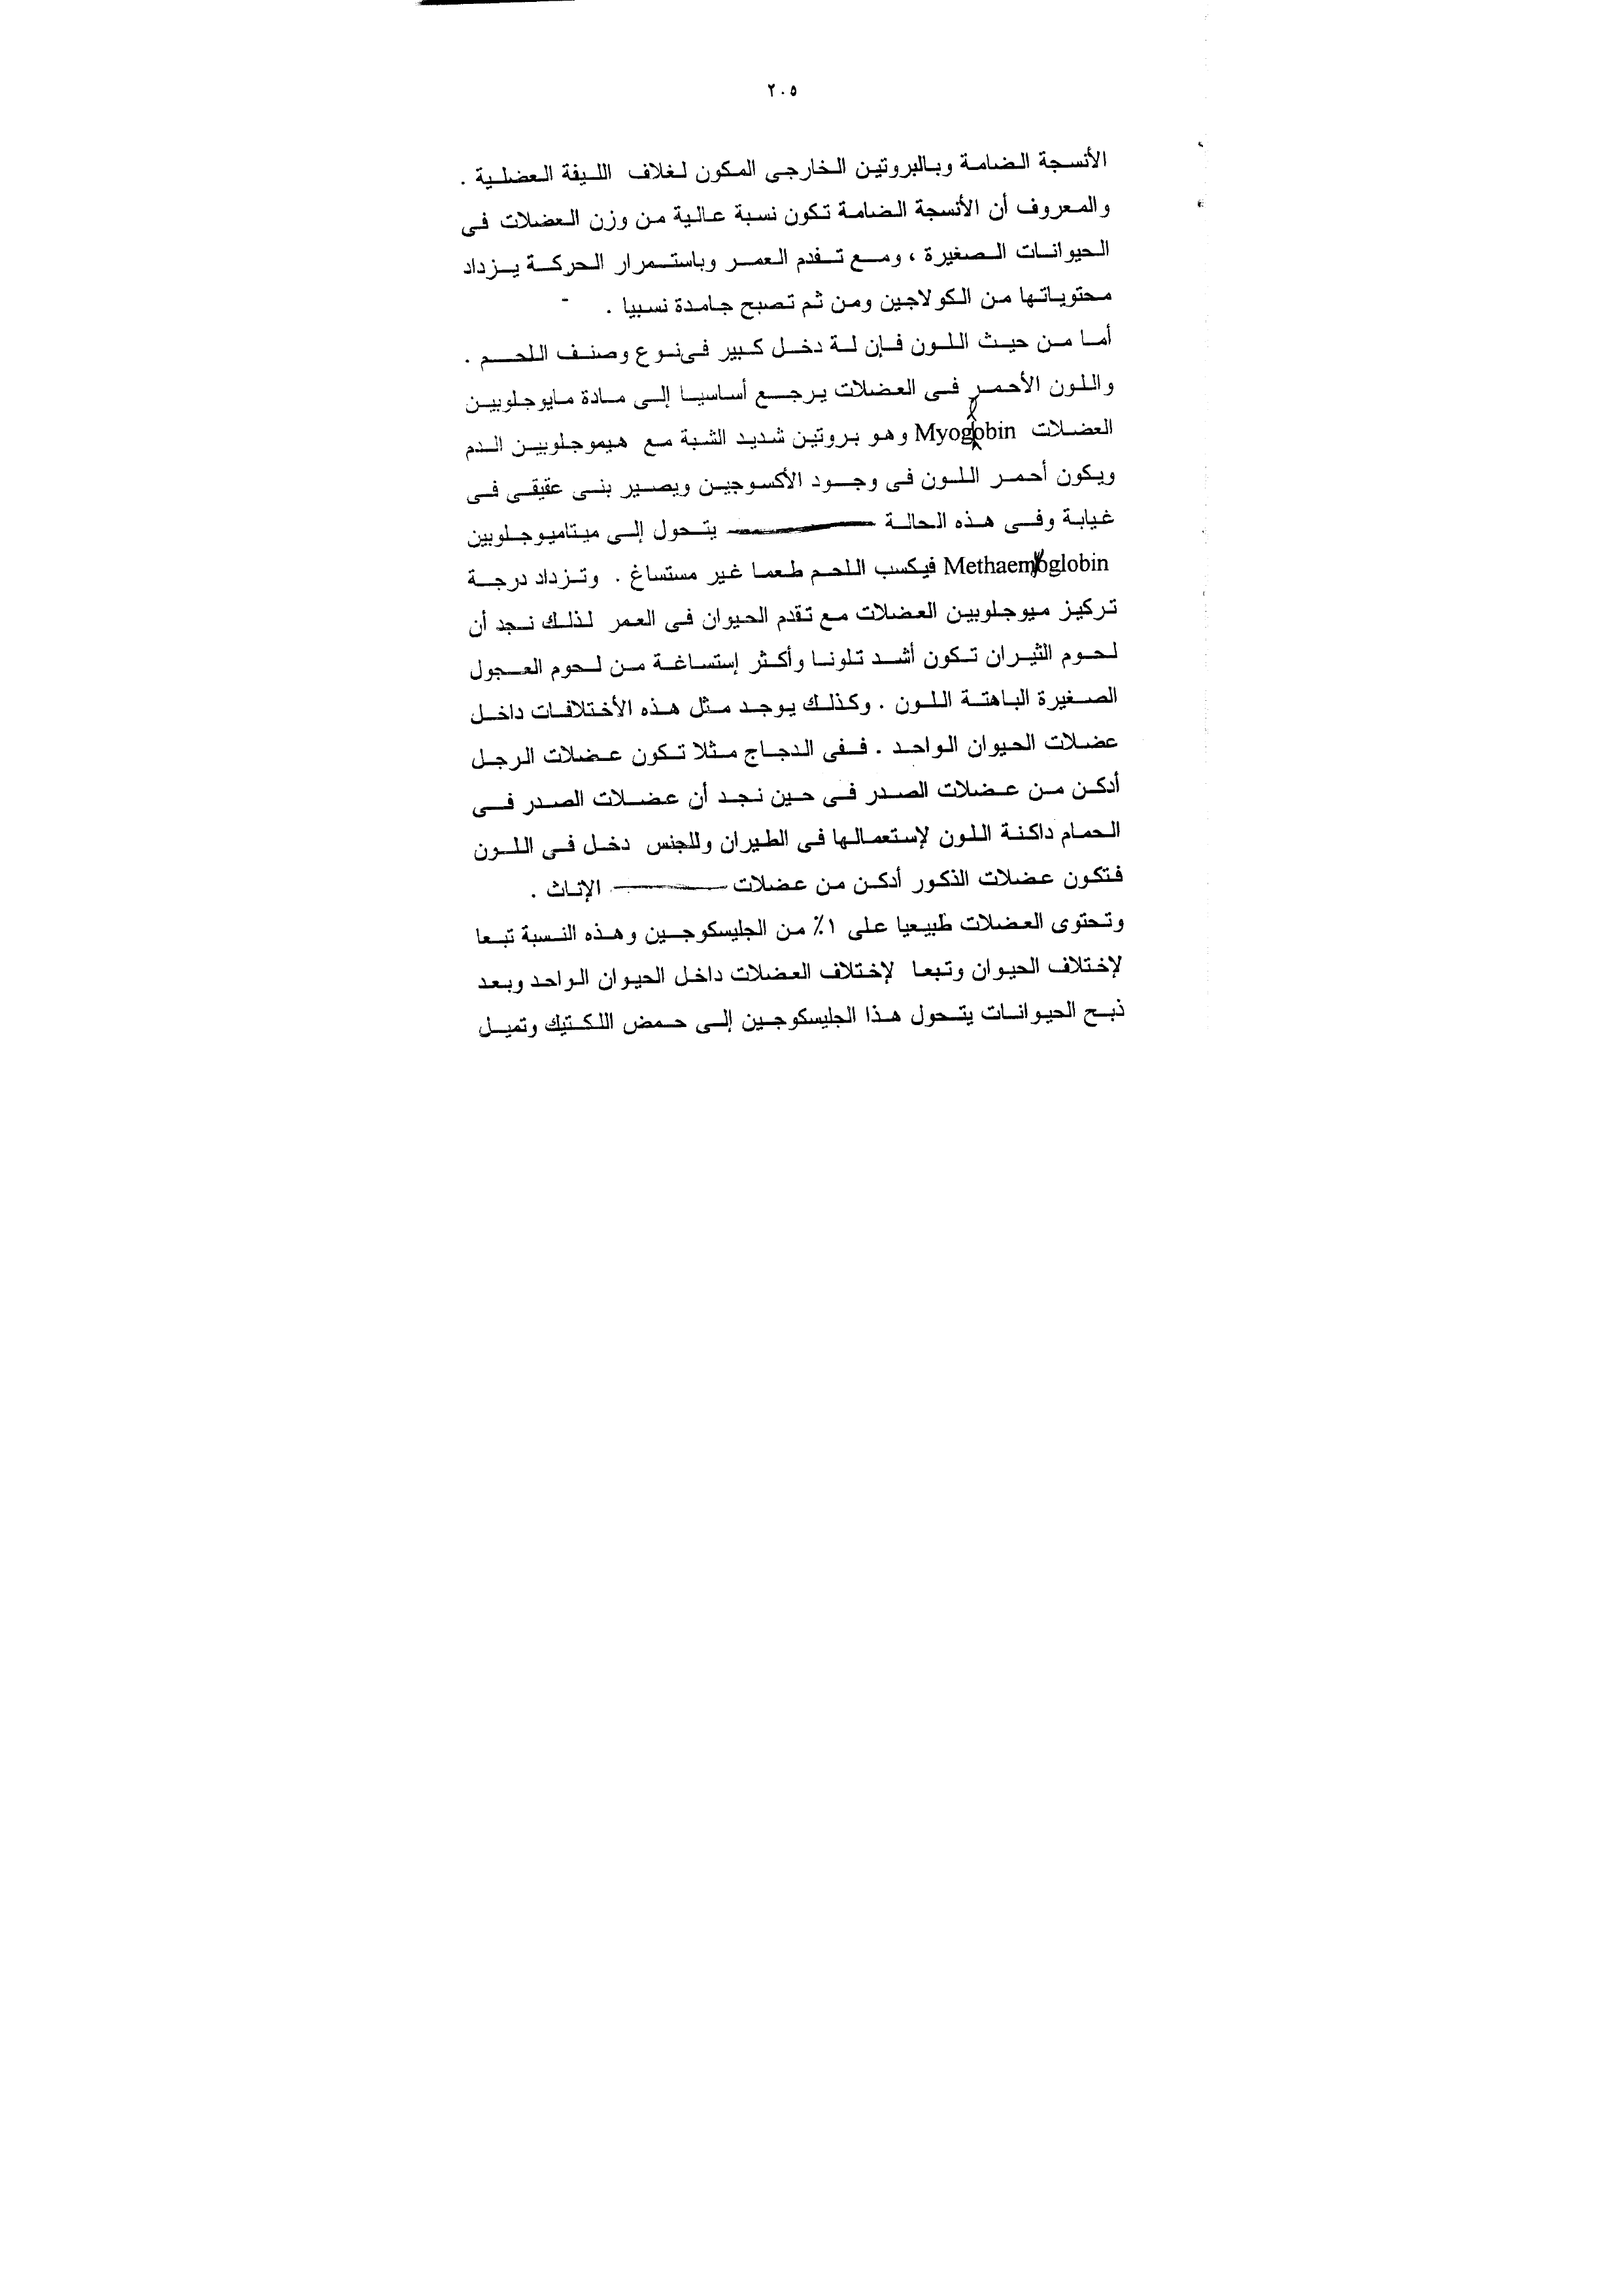 ٢٠٥
الأنسجة الضامة وبالبروتين الخارجى المكون لغلاف الليفة العضلية .
والمعروف أن الأنسجة الضامة تكون نسبة عالية من وزن العضلات فى
الحيوانات الصغيرة ، ومع تقدم العمر وباستمرار الحركة يزداد
محتوياتها من الكولاجين ومن ثم تصبح جامدة نسبيا .
أما من حيث اللون فإن لة دخل كبير فى نوع وصنف اللحم .
واللون الأحمر فى العضلات يرجع أساسيا إلى مادة مايوجلوبين
العضلات Myoglobin وهو بروتين شديد الشبة مع هيموجلوبين الدم
ويكون أحمر اللون فى وجود الأكسوجين ويصير بنى عقيقى فى
غيابة وفى هذه الحالة يتحول إلى ميتاميوجلوبين
Methaemoglobin فيكسب اللحم طعما غير مستساغ . وتزداد درجة
تركيز ميوجلوبين العضلات مع تقدم الحيوان فى العمر لذلك نجد أن
لحوم الثيران تكون أشد تلونا وأكثر إستساغة من لحوم العجول
الصغيرة الباهتة اللون . وكذلك يوجد مثل هذه الأختلافات داخل
عضلات الحيوان الواحد . ففى الدجاج مثلا تكون عضلات الرجل
أدكن من عضلات الصدر فى حين نجد أن عضلات الصدر فى
الحمام داكنة اللون لإستعمالها فى الطيران وللجنس دخل فى اللون
فتكون عضلات الذكور أدكن من عضلات الإناث .
وتحتوى العضلات طبيعيا على ١٪ من الجليسكوجين وهذه النسبة تبعا
لإختلاف الحيوان وتبعا لإختلاف العضلات داخل الحيوان الواحد وبعد
ذبح الحيوانات يتحول هذا الجليسكوجين إلى حمض اللكتيك وتميل